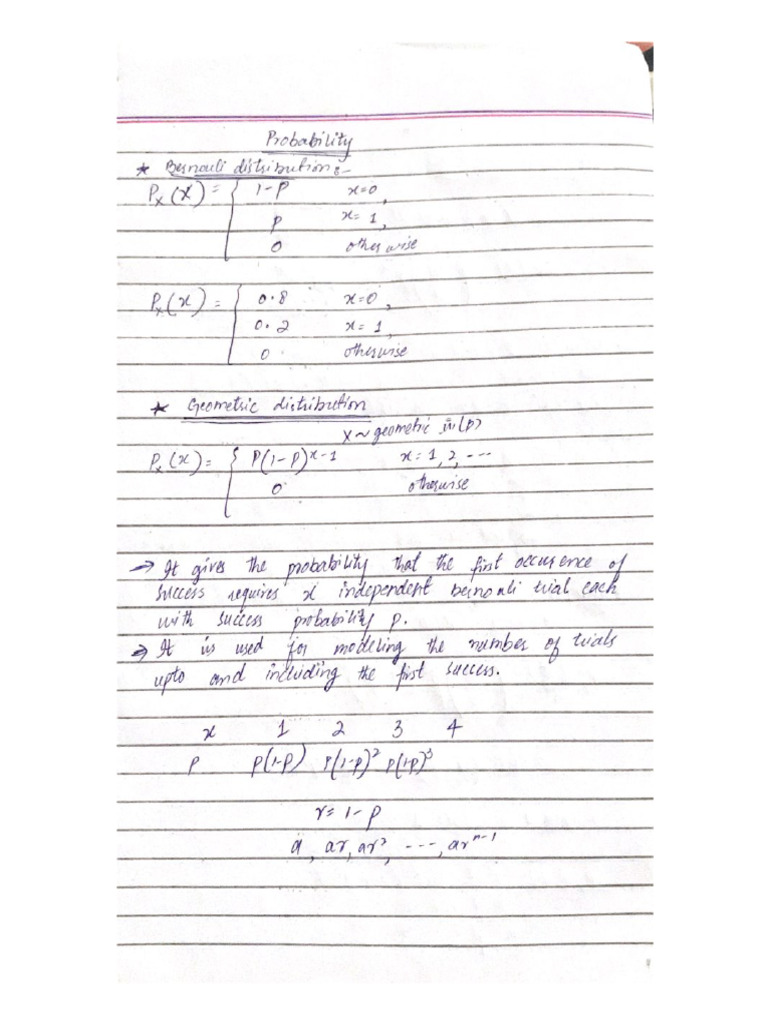 Probability
* Bernouli distribution:-
Px(X) = { 1-P x=0,
P x=1,
0 otherwise
Px(x) = { 0.8 x=0,
0.2 x=1,
0 otherwise
* Geometric distribution
X ~ geometric in(p)
Px(x) = { P(1-P)^x-1 x=1,2,---
0 otherwise
→ It gives the probability that the first occurence of
success requires x independent bernouli trial each
with success probability p.
→ It is used for modeling the number of trials
upto and including the first success.
x 1 2 3 4
P p(1-p) p(1-p)² p(1-p)³
r = 1-p
a, ar, ar², ---, ar^n-1